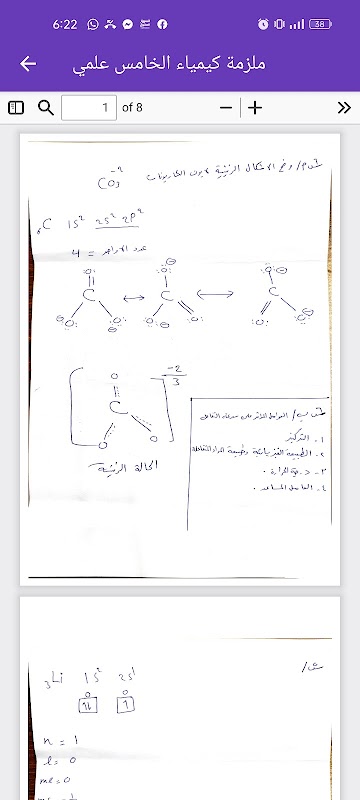 6:22
38
ملزمة كيمياء الخامس علمي
1 of 8
س١/ وضح الاشكال الرنينية لايون الكاربونات CO3 -2
6C 1s2 2s2 2p2
عدد المراجع = 4
O O O
C ↔ C ↔ C
O O O O O O
-2/3
O
C
O O
الحالة الرنينية
س ب/ العوامل المؤثرة على سرعة التفاعل
١. التركيز
٢. الطبيعة الفيزيائية وطبيعة المواد المتفاعلة
٣- درجة الحرارة.
٤. العامل المساعد.
س/
3Li 1s2 2s1
0 0
1L 1
n = 1
l = 0
ml = 0